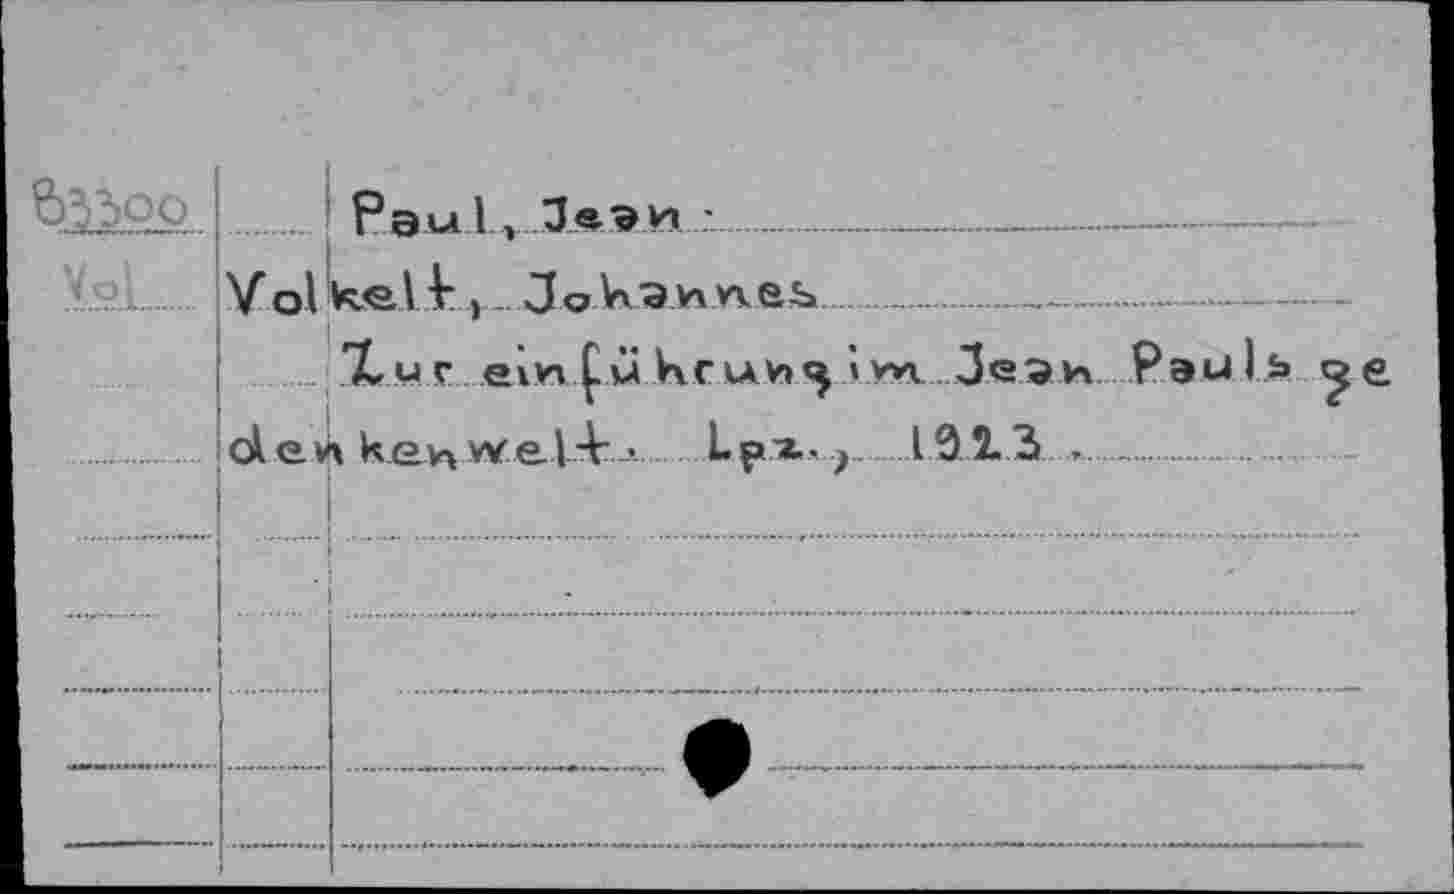 B33oo Paul, Jean.
Vol Volkelt, Johannes
Zur einführung im Jean Pauls ge
denkenwelt. Lpz., 1923.